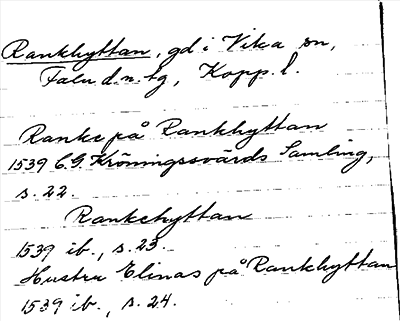 Rankhyttan, gd i Vika sn,
Falu d.n. tg, Kopp. l.
Ranke på Rankhyttan
1539 C.G. Kröningssvärds Samling,
s. 22.
Rankehyttan
1539 ib., s. 23.
Hustru Elinas på Rankhyttan
1539 ib., s. 24.